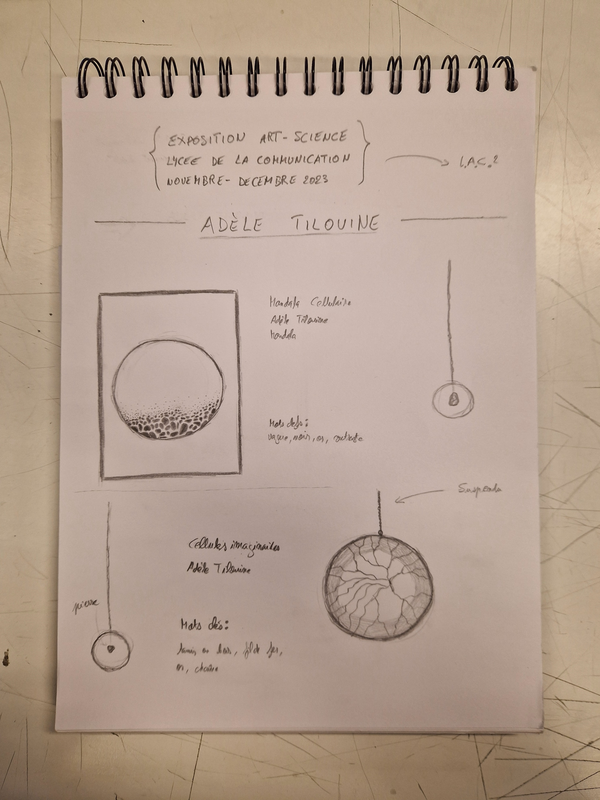 EXPOSITION ART-SCIENCE
LYCEE DE LA COMMUNICATION
NOVEMBRE-DECEMBRE 2023
L.A.C.2
ADÈLE TILOUINE
Mandala Cellulaire
Adèle Tilouine
Mandala
Mots clefs:
noir, or,
Suspendu
Cellules imaginaires
Adèle Tilouine
pierre
Mots clés:
en bois, fil de fer,
or, chaîne